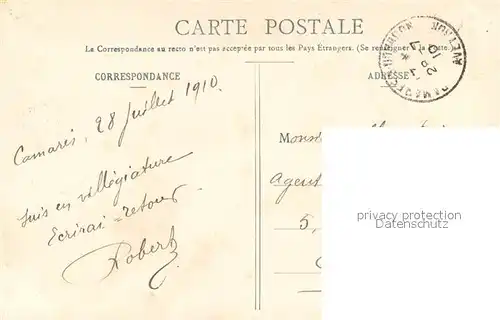 CARTE POSTALE
La Correspondance au recto n'est pas acceptée par tous les Pays Etrangers. (Se renseigner à la Poste).
CORRESPONDANCE
ADRESSE
AVEYRON
28 7
10
Camarès, 28 Juillet 1910.
suis en villégiature
Ecrirai retour
Robert
Mons
Agent
5,
privacy protection
Datenschutz